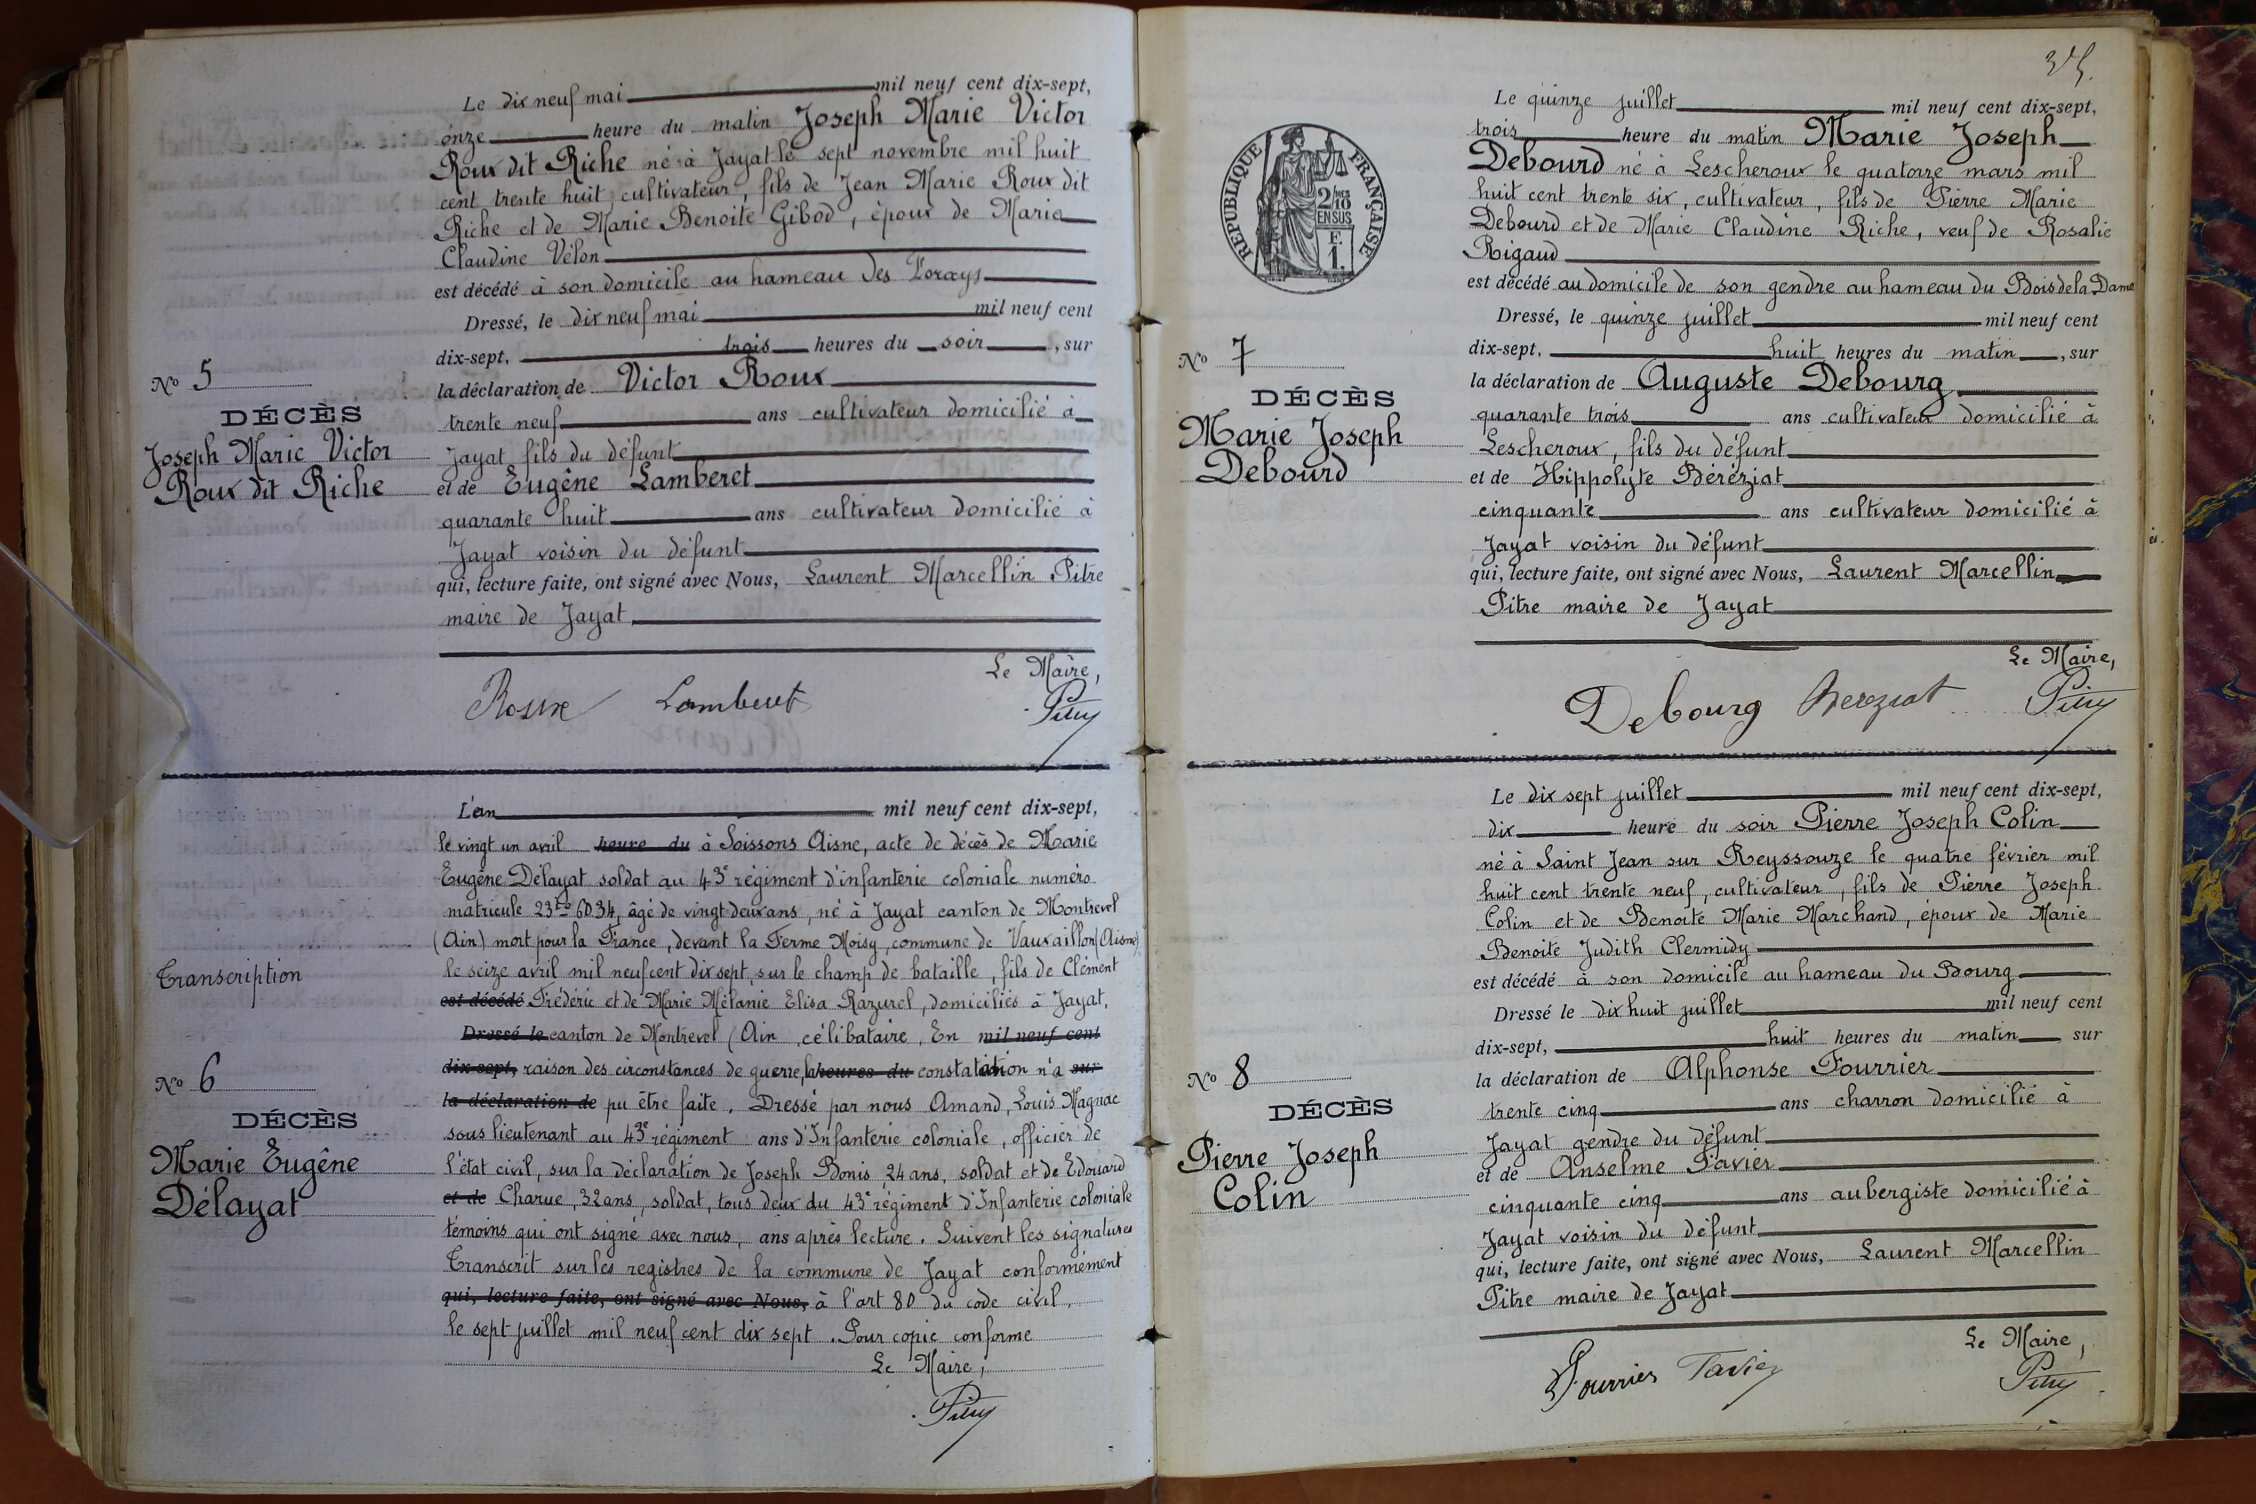 Le dix neuf mai mil neuf cent dix-sept,
onze heure du matin Joseph Marie Victor
Roux dit Riche né à Jayat le sept novembre mil huit
cent trente huit, cultivateur, fils de Jean Marie Roux dit
Riche et de Marie Benoite Gibod, époux de Marie
Claudine Vélon
est décédé à son domicile au hameau des
Dressé, le dix neuf mai mil neuf cent
dix-sept, trois heures du soir, sur
la déclaration de Victor Roux
trente neuf ans cultivateur domicilié à
Jayat fils du défunt
et de Eugêne Lamberet
quarante huit ans cultivateur domicilié à
Jayat voisin du défunt
qui, lecture faite, ont signé avec Nous, Laurent Marcellin Pitre
maire de Jayat
Le Maire,
Roux Lamberet Pitre
No 5
DÉCÈS
Joseph Marie Victor
Roux dit Riche
L'an mil neuf cent dix-sept,
le vingt un avril heure du à Soissons Aisne, acte de décès de Marie
Eugêne Délayat soldat au 43e régiment d'infanterie coloniale numéro
matricule 23to 6034, âgé de vingt deux ans, né à Jayat canton de Montrevel
(Ain) mort pour la France, devant la Ferme Moisy, commune de Vauxaillon (Aisne)
le seize avril mil neuf cent dix sept, sur le champ de bataille, fils de Clément
est décédé Frédéric et de Marie Mélanie Elisa Razurel, domiciliés à Jayat,
Dressé le canton de Montrevel (Ain, célibataire, En mil neuf cent
dix-sept, raison des circonstances de guerre, la heures du constatation n'a sur
la déclaration de pu être faite. Dressé par nous Amand, Louis Magnac
sous lieutenant au 43e régiment ans d'Infanterie coloniale, officier de
l'état civil, sur la déclaration de Joseph Bonis 24 ans, soldat et de Edouard
et de Charue, 32 ans, soldat, tous deux du 43e régiment d'Infanterie coloniale
témoins qui ont signé avec nous, ans après lecture. Suivent les signatures
Transcrit sur les registres de la commune de Jayat conformément
qui, lecture faite, ont signé avec Nous, à l'art 80 du code civil,
le sept juillet mil neuf cent dix sept. Pour copie conforme
Le Maire,
Pitre
Transcription
No 6
DÉCÈS
Marie Eugêne
Délayat
REPUBLIQUE FRANÇAISE
2/10 MES
EN SUS
F.
1.
Le quinze juillet mil neuf cent dix-sept,
trois heure du matin Marie Joseph
Debourd né à Lescheroux le quatorze mars mil
huit cent trente six, cultivateur, fils de Pierre Marie
Debourd et de Marie Claudine Riche, veuf de Rosalie
Rigaud
est décédé au domicile de son gendre au hameau du Bois de la Dame
Dressé, le quinze juillet mil neuf cent
dix-sept, huit heures du matin, sur
la déclaration de Auguste Debourg
quarante trois ans cultivateur domicilié à
Lescheroux, fils du défunt
et de Hippolyte Béréziat
cinquante ans cultivateur domicilié à
Jayat voisin du défunt
qui, lecture faite, ont signé avec Nous, Laurent Marcellin
Pitre maire de Jayat
Le Maire,
Debourg Bereziat Pitre
No 7
DÉCÈS
Marie Joseph
Debourd
Le dix sept juillet mil neuf cent dix-sept,
dix heure du soir Pierre Joseph Colin
né à Saint Jean sur Reyssouze le quatre février mil
huit cent trente neuf, cultivateur, fils de Pierre Joseph
Colin et de Benoite Marie Marchand, époux de Marie
Benoite Judith Clermidy
est décédé à son domicile au hameau du Bourg
Dressé le dix huit juillet mil neuf cent
dix-sept, huit heures du matin sur
la déclaration de Alphonse Fourrier
trente cinq ans charron domicilié à
Jayat gendre du défunt
et de Anselme Favier
cinquante cinq ans aubergiste domicilié à
Jayat voisin du défunt
qui, lecture faite, ont signé avec Nous, Laurent Marcellin
Pitre maire de Jayat
Le Maire,
Fourrier Favier Pitre
No 8
DÉCÈS
Pierre Joseph
Colin